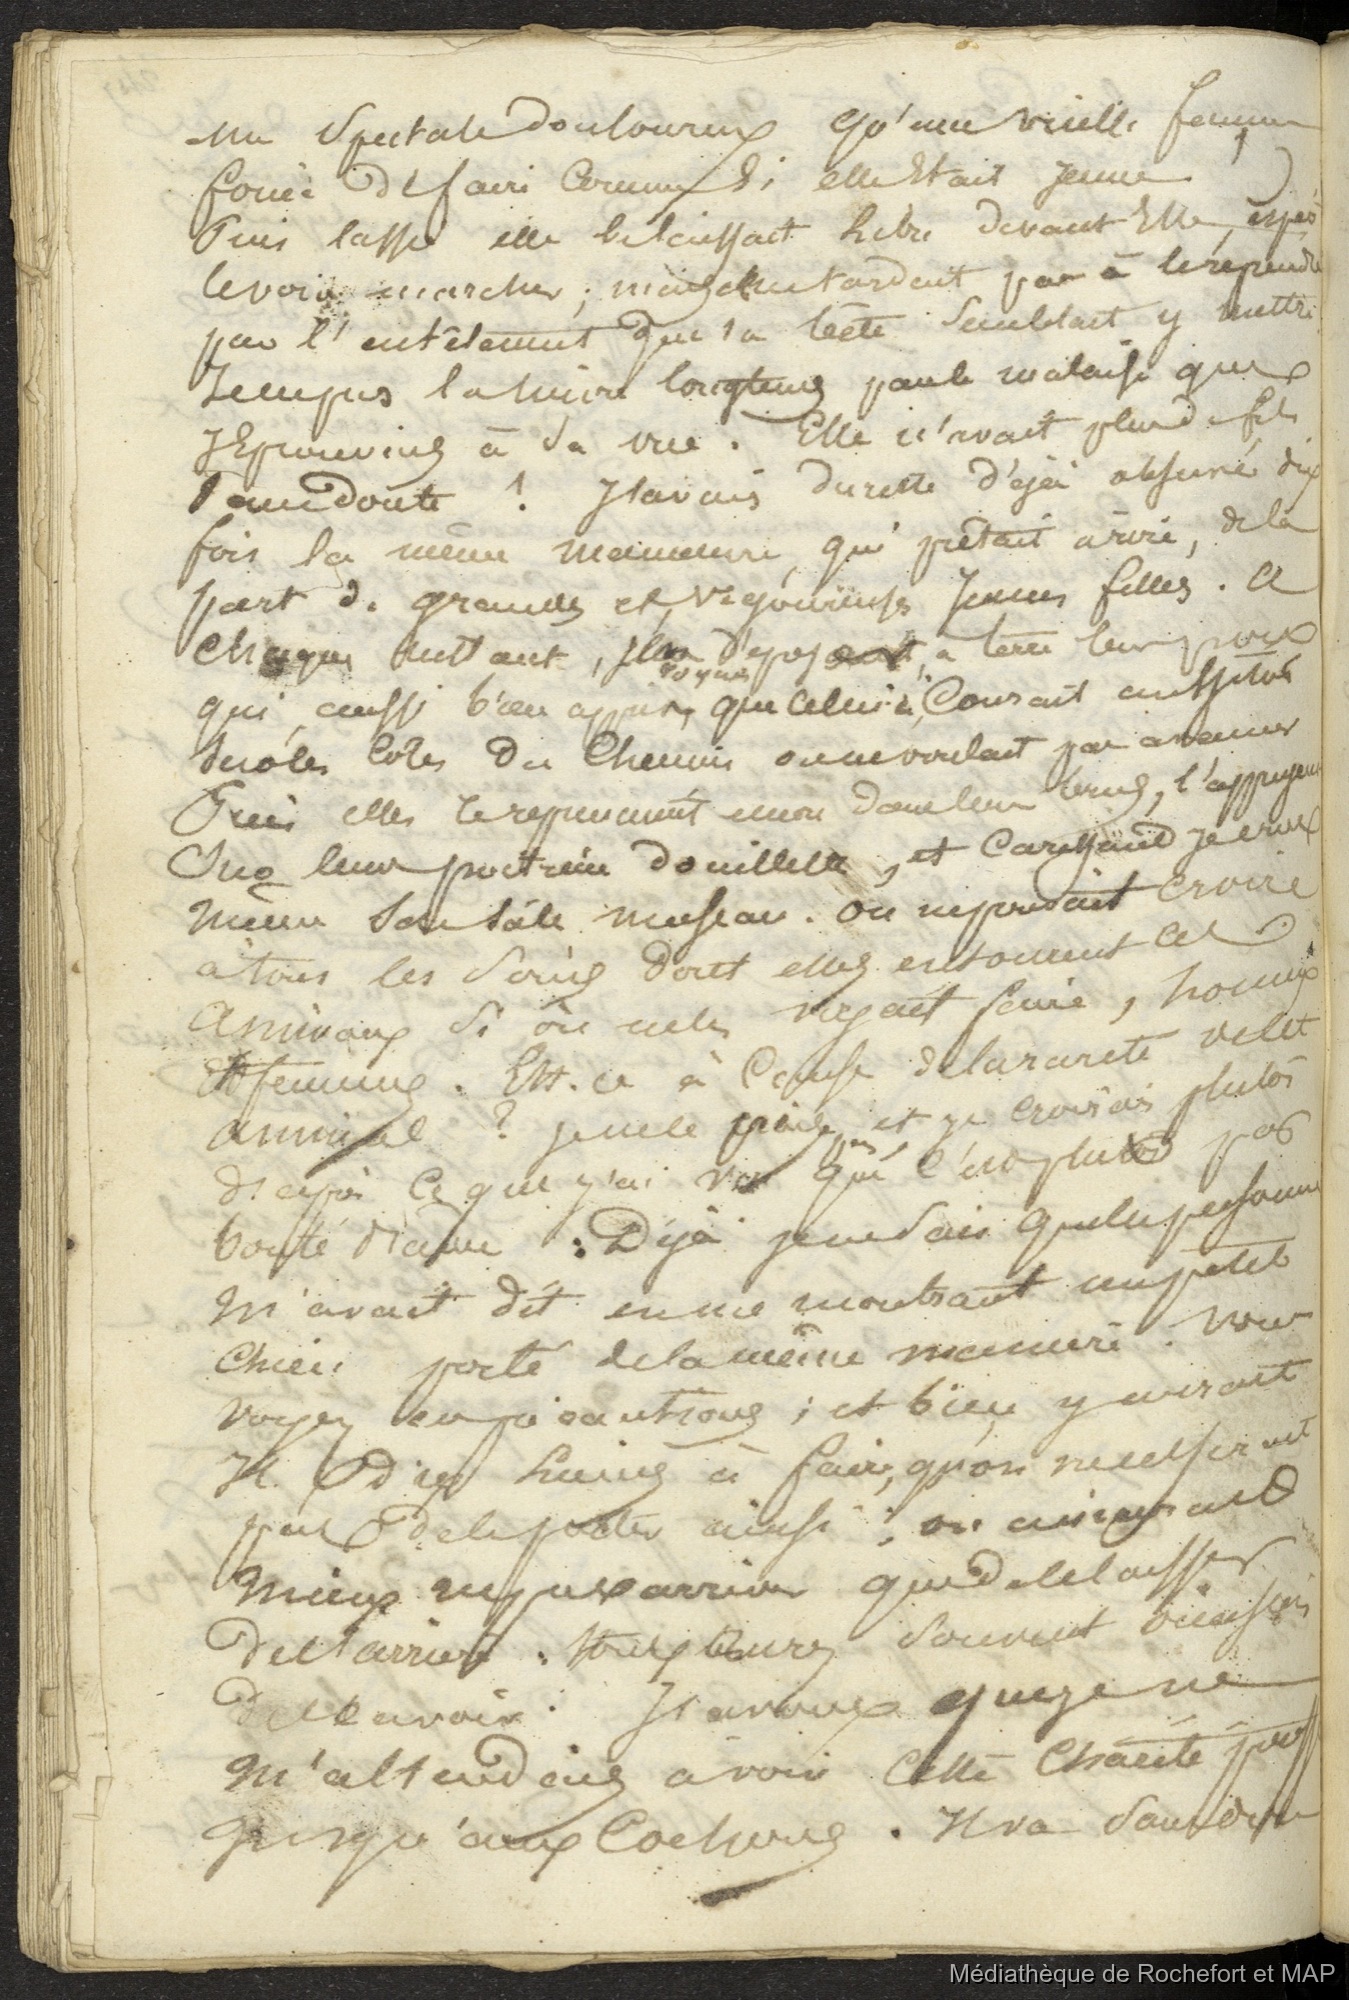 un spectale douloureux qu'une vieille femme
forcée de faire comme si elle était jeune
Puis lasse elle le laissait libre devant Elle,
le voir marcher; mais ne tardait pas à le reprendre
par l'entêtement que la bête semblait y mettre
Je ne pus la suivre longtems par le malaise que
J'Eprouvais à sa vue. Elle n'avait plus de fils
sans doute ! J'avais du reste déjà observé dix
fois la même manœuvre, qui prêtait à rire, de la
part de grandes et vigoureuses Jeunes filles. A
chaque instant, à terre leur porc
qui, aussi bien appris que celui-ci, Courait aussitôt
sur les cotés du Chemin ou ne voulait pas avancer
Puis elles le reprenaient encore dans leur bras, l'appuyant
sur leur poitrine douillette, et Caressant je crois
même son sale museau. On ne pourait croire
à tous les soins dont elles entourent cet
Animaux si on ne les voyait faire, hommes
et femmes. Est-ce à Cause de la rareté de cet
animal ? je ne le pense pas, et je croirais plutôt
d'après ce que j'ai vu que c'est plutôt par
bonté d'ame : Déjà je ne sais quelle personne
M'avait dit en me montrant un petit
Chien porté de la même manière. Vous
voyez ces précautions; et bien y aurait
Il dix lieues à faire, qu'on ne cesserait
pas de le porter ainsi; on aimerait
Mieux ne pas arriver que de le laisser
de l'arrière.
de l'avoir. J'avoue que je ne
M'attendais à voir cette Charité
jusqu'aux Cochons. Il va sans dire
Médiathèque de Rochefort et MAP